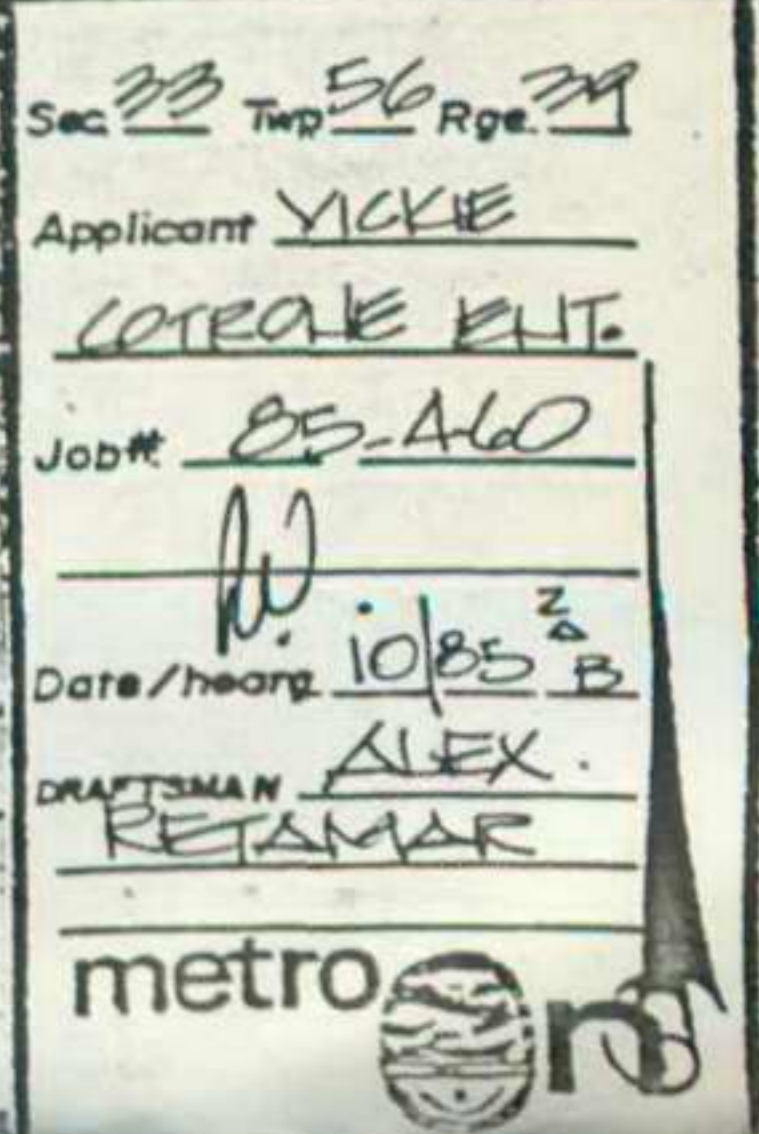 Sec. 33 Twp 56 Rge. 39
Applicant VICKIE
COTRONE ENT.
Job# 85-460
Date/hearg 10/85 ZAB
DRAFTSMAN ALEX.
RETAMAR
metro